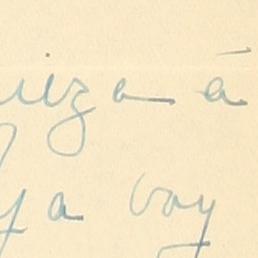 iza a
y a voy